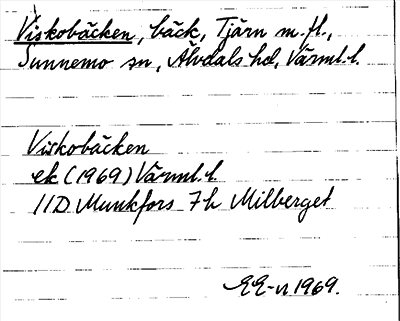 Viskobäcken, bäck, Tjärn m.fl.,
Sunnemo sn, Älvdals hd, Värml.l.
Viskobäcken
ek (1969) Värml.l.
11D Munkfors 7h Milberget
1969.